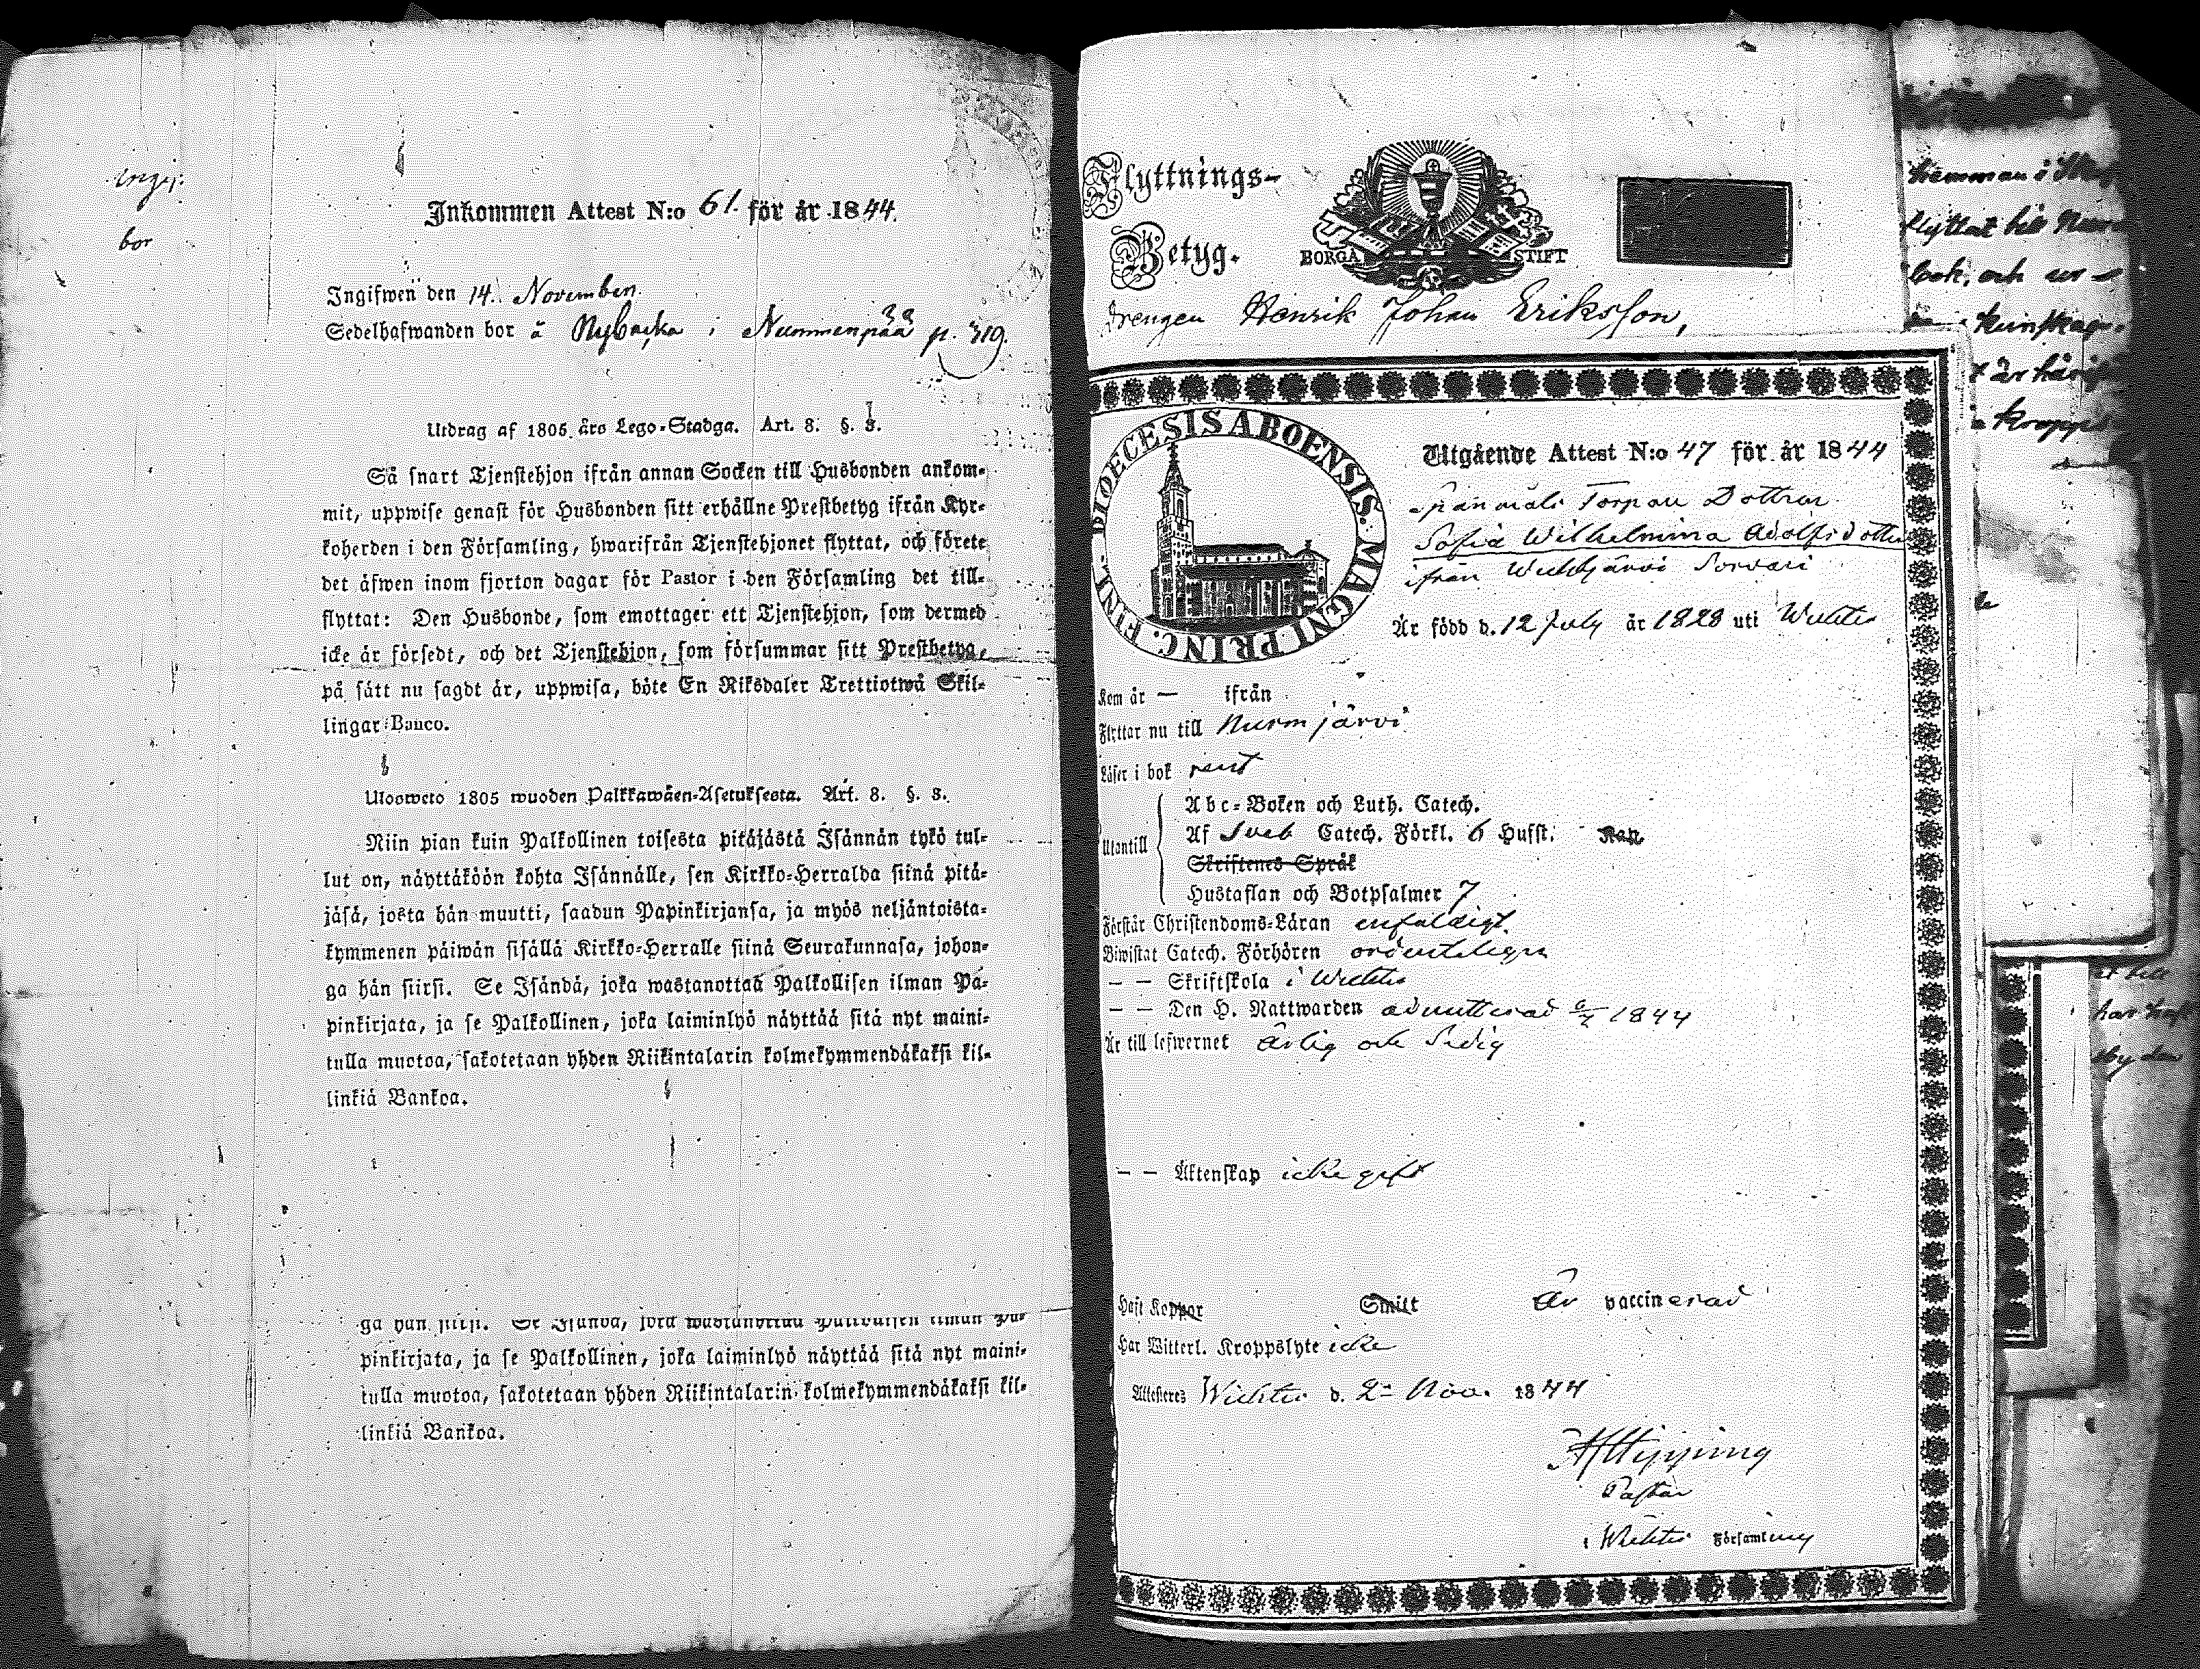 Ingif:
bor
Inkommen Attest N:o 61. för år 1844.
Ingifwen den 14. November.
Sedelhafwanden bor å Nybacka i Nummenpää p. 319.
Utdrag af 1805 års Lego-Stadga. Art. 8. §. 3.
Så snart Tjenstehjon ifrån annan Socken till Husbonden ankom-
mit, uppwise genast för Husbonden sitt erhållne Prestbetyg ifrån Kyr-
koherden i den Församling, hwarifrån Tjenstehjonet flyttat, och förete
det äfwen inom fjorton dagar för Pastor i den Församling det till-
flyttat: Den Husbonde, som emottager ett Tjenstehjon, som dermed
icke är försedt, och det Tjenstehjon, som försummar sitt Prestbetyg,
på sätt nu sagdt är, uppwisa, böte En Riksdaler Trettiotwå Skil-
lingar Banco.
Ulosweto 1805 wuoden Palkkawäen-Asetuksesta. Art. 8. §. 3.
Niin pian kuin Palkollinen toisesta pitäjästä Isännän tykö tul-
lut on, näyttäköön kohta Isännälle, sen Kirkko-Herralda siinä pitä-
jäsä, josta hän muutti, saadun Papinkirjansa, ja myös neljäntoista-
kymmenen päiwän sisällä Kirkko-Herralle siinä Seurakunnasa, johon-
ga hän siirsi. Se Isändä, joka wastanottaa Palkollisen ilman Pa-
pinkirjata, ja se Palkollinen, joka laiminlyö näyttää sitä nyt maini-
tulla muotoa, sakotetaan yhden Riikintalarin kolmekymmendäkaksi kil-
linkiä Bankoa.
ga hän siirsi. Se Isändä, joka wastanottaa Palkollisen ilman Pa-
pinkirjata, ja se Palkollinen, joka laiminlyö näyttää sitä nyt maini-
tulla muotoa, sakotetaan yhden Riikintalarin kolmekymmendäkaksi kil-
linkiä Bankoa.
Flyttnings-
Betyg.
BORGÅ STIFT
Drengen Henrik Johan Eriksson,
DIOECESIS ABOENSIS. MAGNI PRINC. FINL.
Utgående Attest N:o 47 för år 1844
Torpare Dottren
Sofia Wilhelmina Adolfsdotter
ifrån Wichtjärvi Sorvari
Är född d. 12 July år 1828 uti Wichtis
Kom år — ifrån
Flyttar nu till Nurmjärvi
Läser i bok rent
Utantill
Abc-Boken och Luth. Catech.
Af Sveb Catech. Förkl. 6 Hufst. Kap.
Skriftenes Språk
Hustaflan och Botpsalmer 7
Förstår Christendoms-Läran enfaldigt.
Biwistat Catech. Förhören ordentligen
— — Skriftskola i Wichtis
— — Den H. Nattwarden admitterad 9/7 1844
Är till lefwernet ärlig och Sedig
— — Äktenskap icke gift
Haft Koppor Smitt Är vaccinerad
Har Witterl. Kroppslyte icke
Attesteres Wichtis d. 2 Nov. 1844
AHipping
Pastor
i Wichtis Församling
hemman i
flyttat till
bok, och
kunskap
är
kroppS
et till
har haft